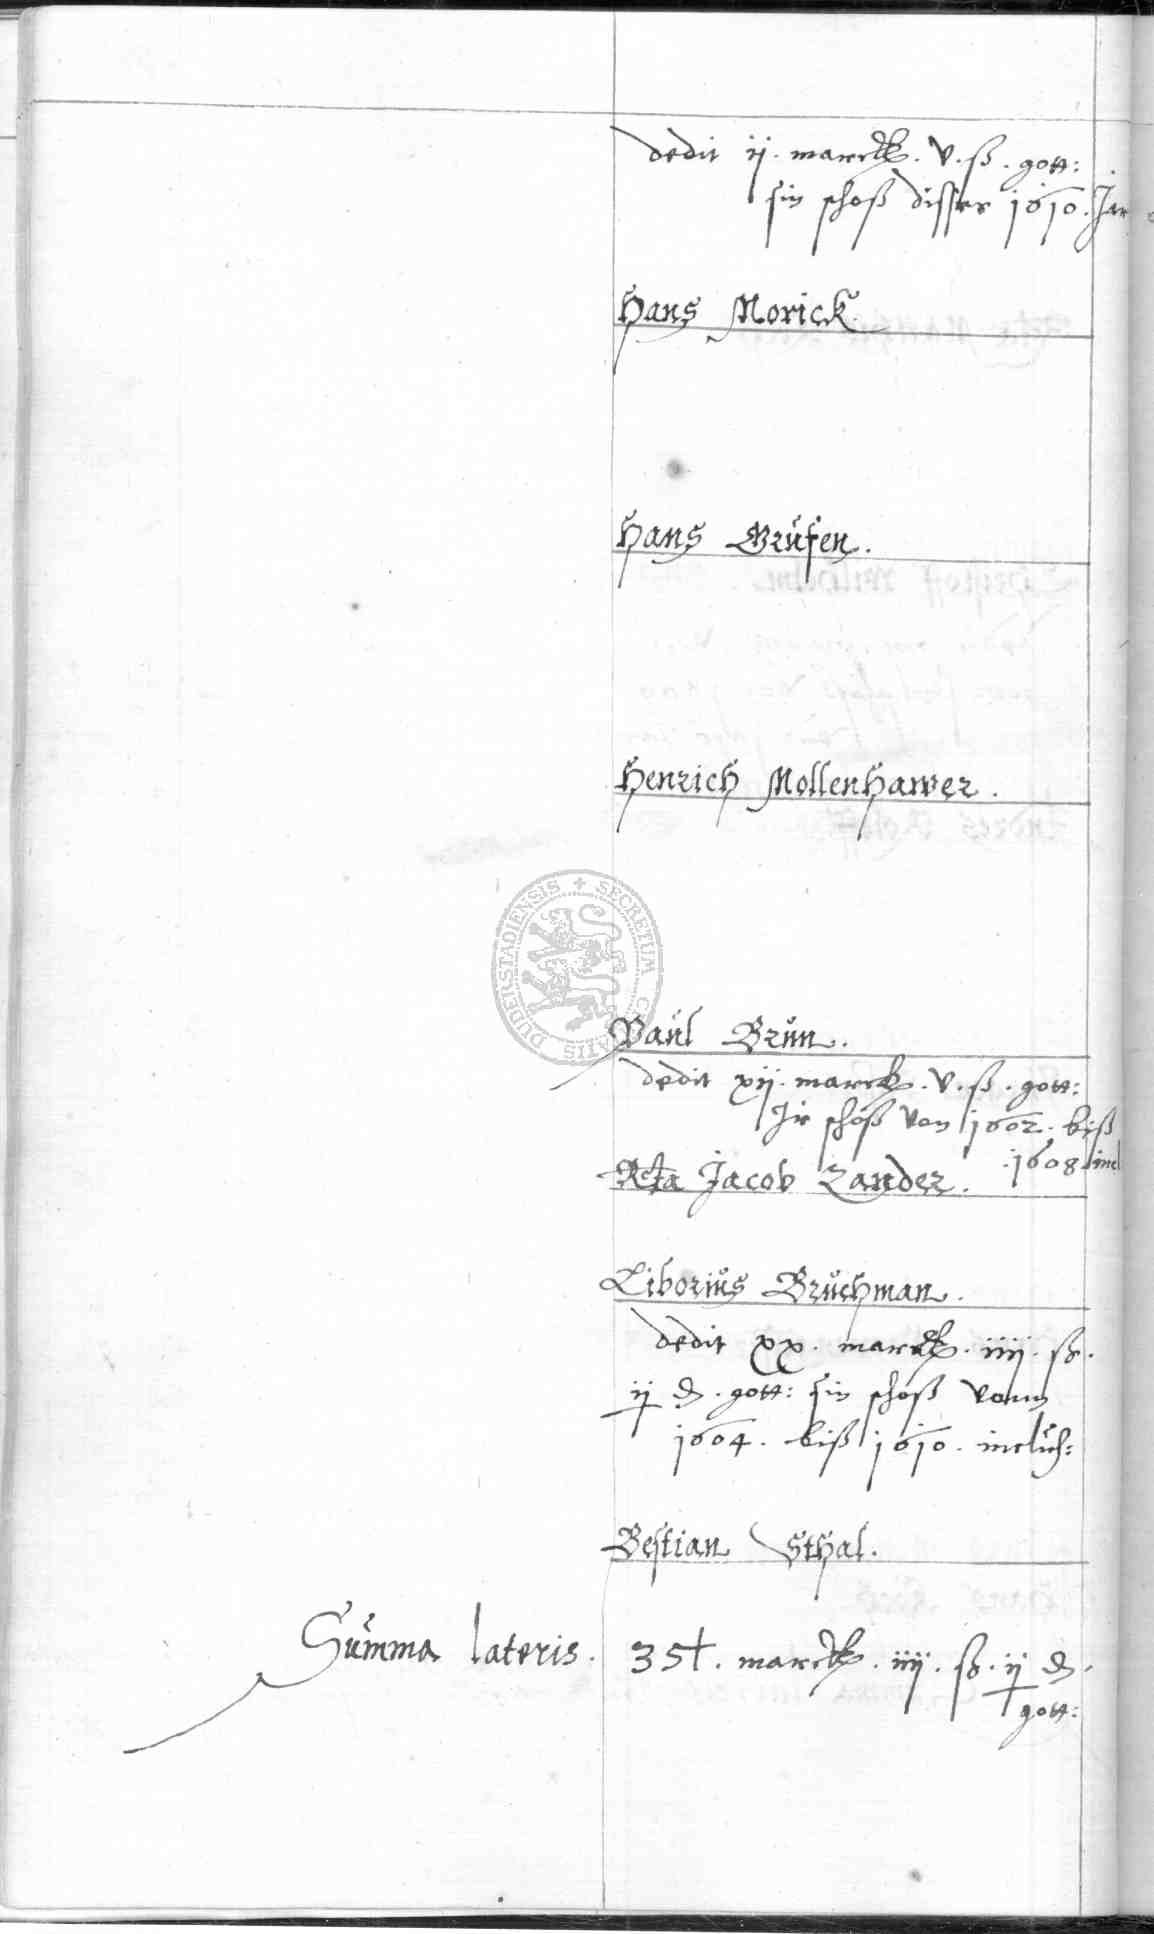 dedit ij. marck. v. ß. gott:
sin schoß disser 1610. Jar
Hans Morick.
Hans Grüsen.
Henrich Mollenhawer.
SECRETUM CIVITATIS DUDERSTADIENSIS
Paül Brün.
dedit xij. marck. v. ß. gott:
Ir schoß von 1602. biß
.1608. incl
Rcta Jacob Zander.
Liboriüs Brüchman.
dedit xx. marck. iiij. ß.
ij δ. gott: sin schoß vonn
1604. biß 1610. inclüs:
Bestian Sthal.
Sümma lateris. 35 . marck. iiij. ß. ij δ.
gott: